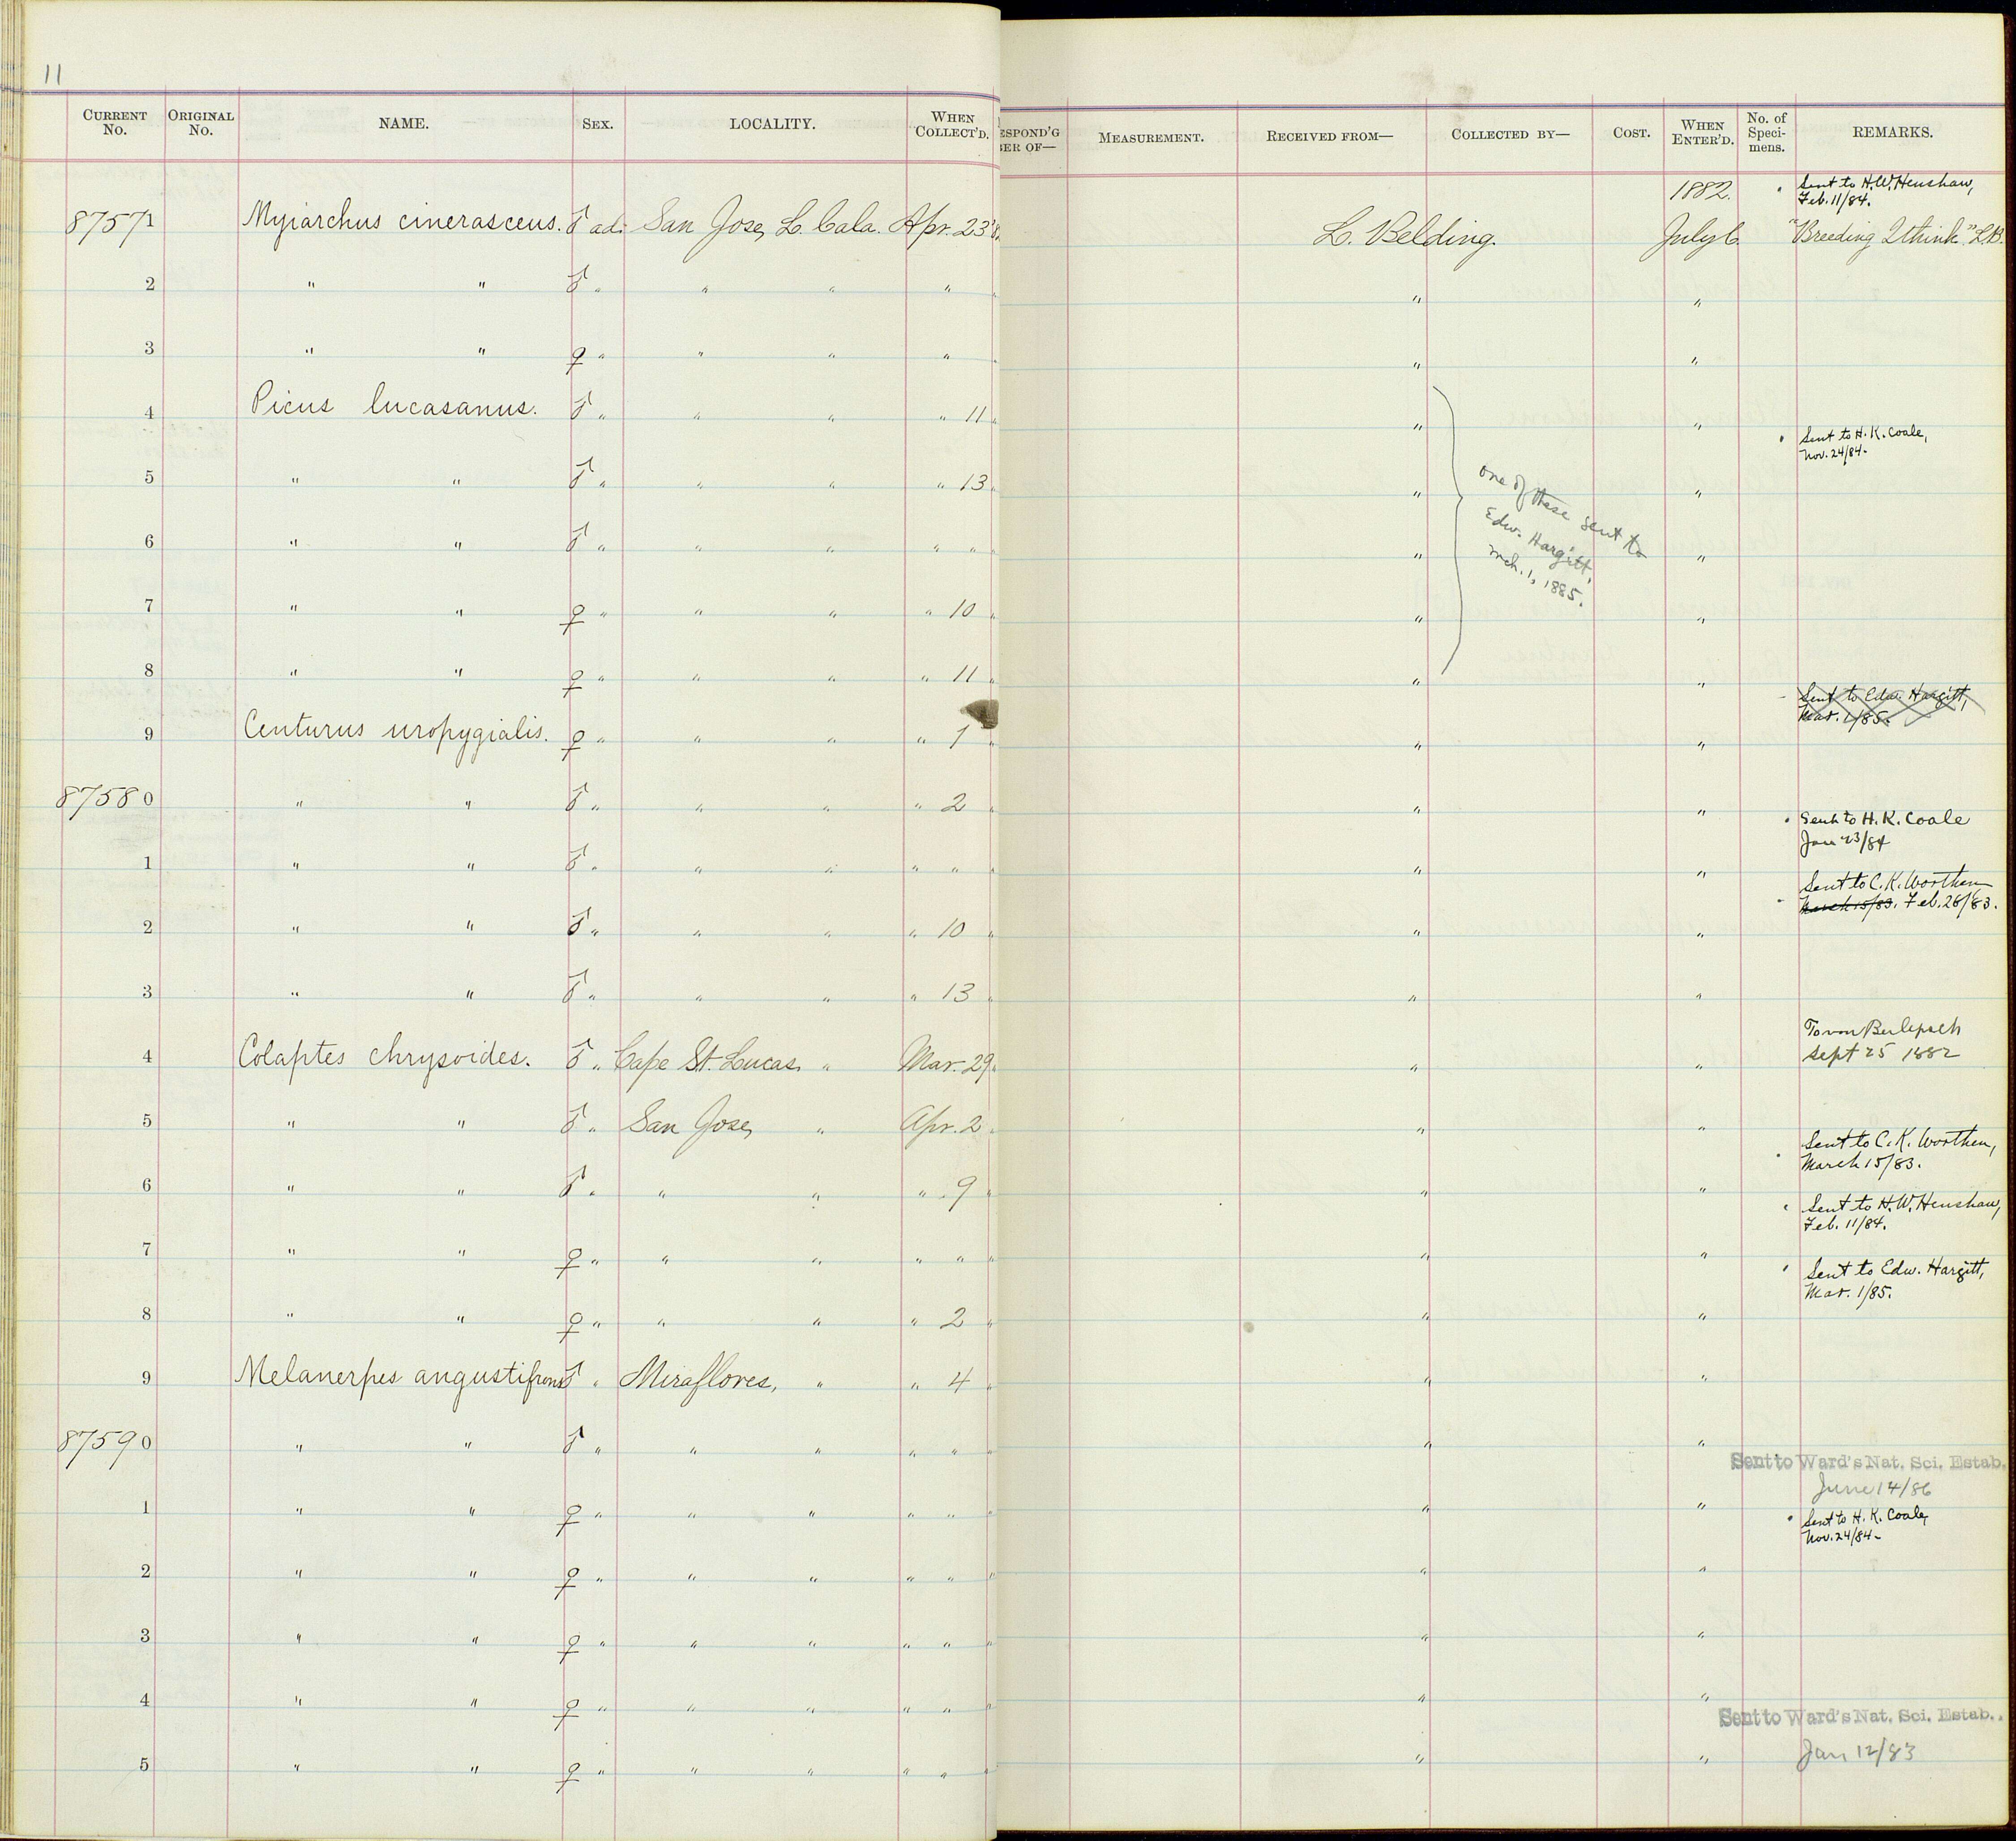 11
CURRENT No. ORIGINAL No. NAME. SEX. LOCALITY. WHEN COLLECT'D. ESPOND'G BER OF— MEASUREMENT. RECEIVED FROM— COLLECTED BY— COST. WHEN ENTER'D. No. of Speci- mens. REMARKS.
1882. Sent to H.W. Henshaw,
Feb. 11/84.
87571 Myiarchus cinerascens. ♂ ad. San Jose, L. Cala. Apr. 23 '82 L. Belding. July 6 "Breeding I think" L.B.
2 " " ♂ " " " " " " "
3 " " ♀ " " " " " " "
4 Picus lucasanus. ♂ " " " " 11 " " "
Sent to H. K. Coale,
Nov. 24/84.
5 " " ♂ " " " " 13 " " "
one of these sent to
Edw. Hargitt,
Mch. 1, 1885.
6 " " ♂ " " " " " " "
7 " " ♀ " " " " 10 " " "
8 " " ♀ " " " " 11 " " "
Sent to Edw. Hargitt,
Mar. 1/85.
9 Centurus uropygialis. ♀ " " " " 1 " " "
87580 " " ♂ " " " " 2 " " "
Sent to H. K. Coale
Jan 23/84
1 " " ♂ " " " " " " "
Sent to C. K. Worthen
March 15/83. Feb. 26/83.
2 " " ♂ " " " " 10 " " "
3 " " ♂ " " " " 13 " " "
4 Colaptes chrysoides. ♂ " Cape St. Lucas, " Mar. 29 " " " To von Berlepsch
Sept 25 1882
5 " " ♂ " San Jose, " Apr. 2 " " "
Sent to C. K. Worthen,
March 15/83.
6 " " ♂ " " " " 9 " " "
Sent to H. W. Henshaw,
Feb. 11/84.
7 " " ♀ " " " " " " " "
Sent to Edw. Hargitt,
Mar. 1/85.
8 " " ♀ " " " " 2 " " "
9 Melanerpes angustifrons ♂ " Miraflores, " " 4 " " "
87590 " " ♂ " " " " " " " "
Sent to Ward's Nat. Sci. Estab.
June 14/86
1 " " ♀ " " " " " " " "
Sent to H. K. Coale,
Nov. 24/84
2 " " ♀ " " " " " " " "
3 " " ♀ " " " " " " " "
4 " " ♀ " " " " " " " "
Sent to Ward's Nat. Sci. Estab.
Jan 12/83
5 " " ♀ " " " " " " " "